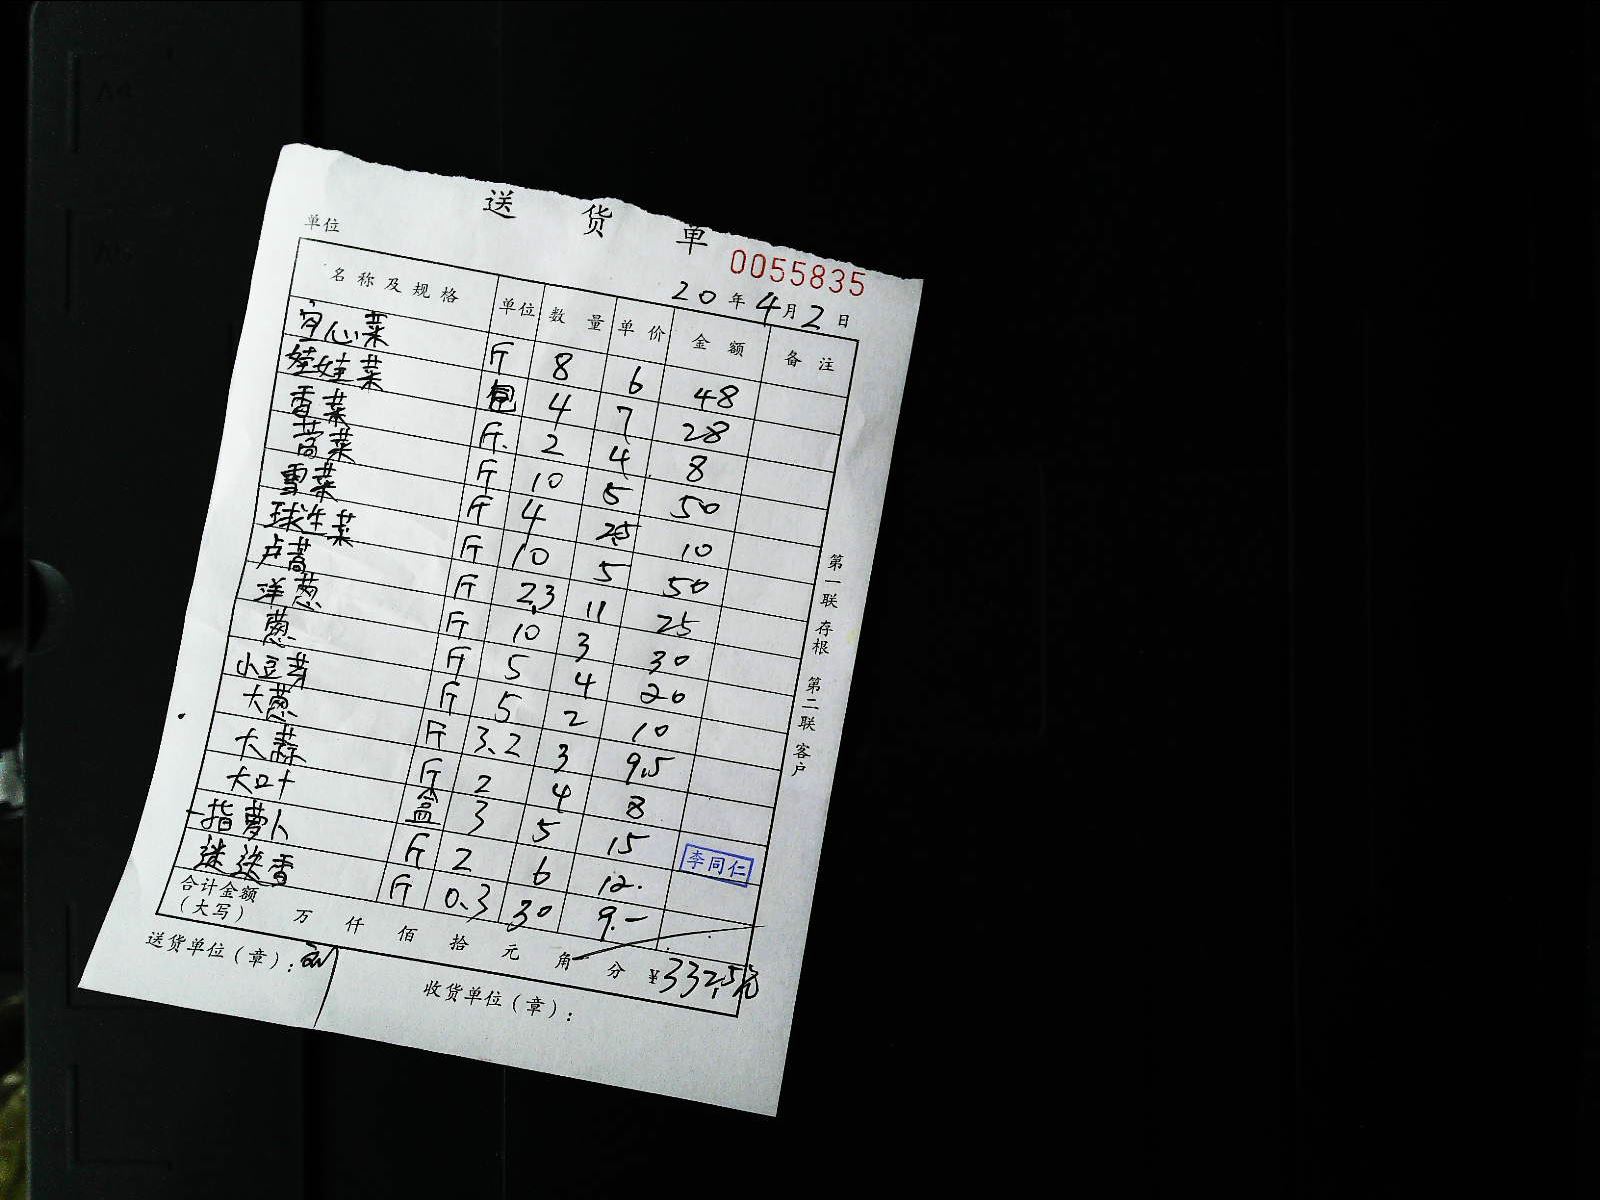 送货单
0055835
单位
20年4月2日
名称及规格 单位 数量 单价 金额 备注
空心菜 斤 8 6 48
娃娃菜 包 4 7 28
香菜 斤 2 4 8
茼菜 斤 10 5 50
雪菜 斤 4 2.5 10
球生菜 斤 10 5 50
卢蒿 斤 2.3 11 25
洋葱 斤 10 3 30
葱 斤 5 4 20
小豆芽 斤 5 2 10
大葱 斤 3.2 3 9.5
大蒜 斤 2 4 8
大口十 盒 3 5 15
一指萝卜 斤 2 6 12.
迷迭香 斤 0.3 30 9.-
李同仁
合计金额
(大写) 万 仟 佰 拾 元 角 分 ¥332.5元
送货单位(章):
收货单位(章):
第一联 存根 第二联 客户